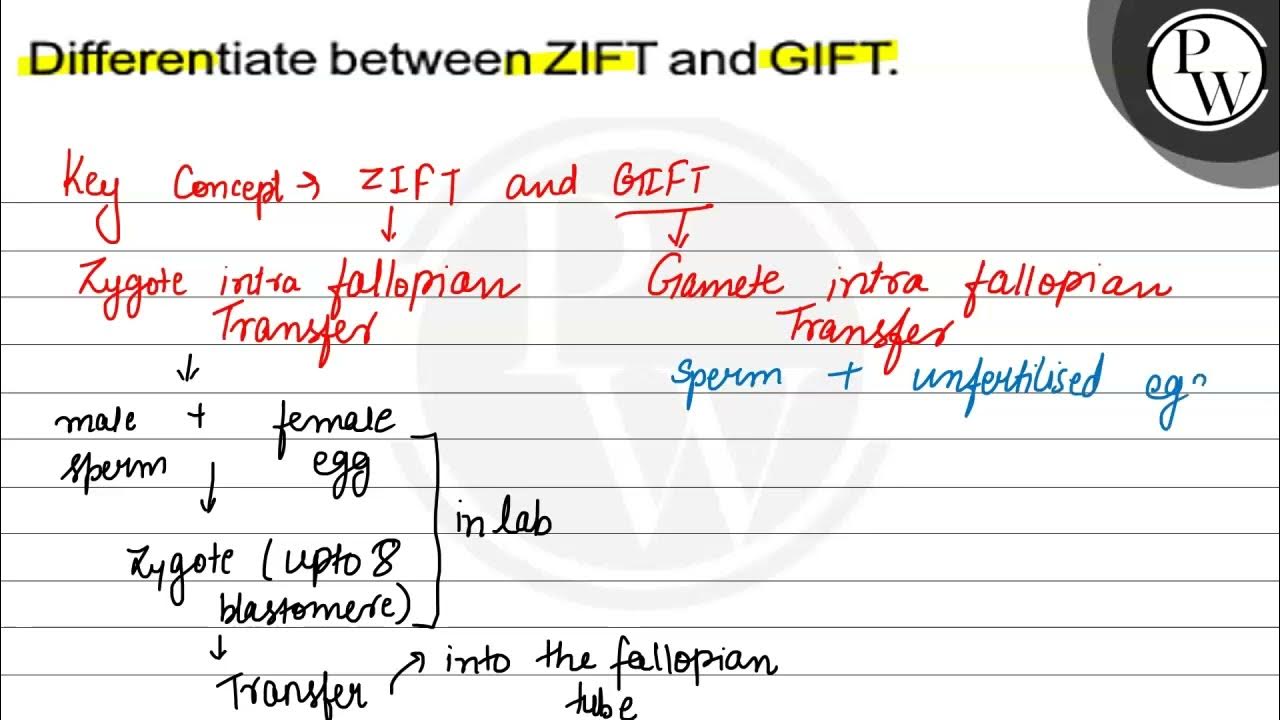 Differentiate between ZIFT and GIFT.
PW
Key Concept → ZIFT and GIFT
↓ ↓
Zygote intra fallopian Transfer
Gamete intra fallopian Transfer
sperm + unfertilised eg
↓
male + female
sperm ↓ egg
in lab
Zygote (upto 8
blastomere)
↓
Transfer → into the fallopian
tube
PW